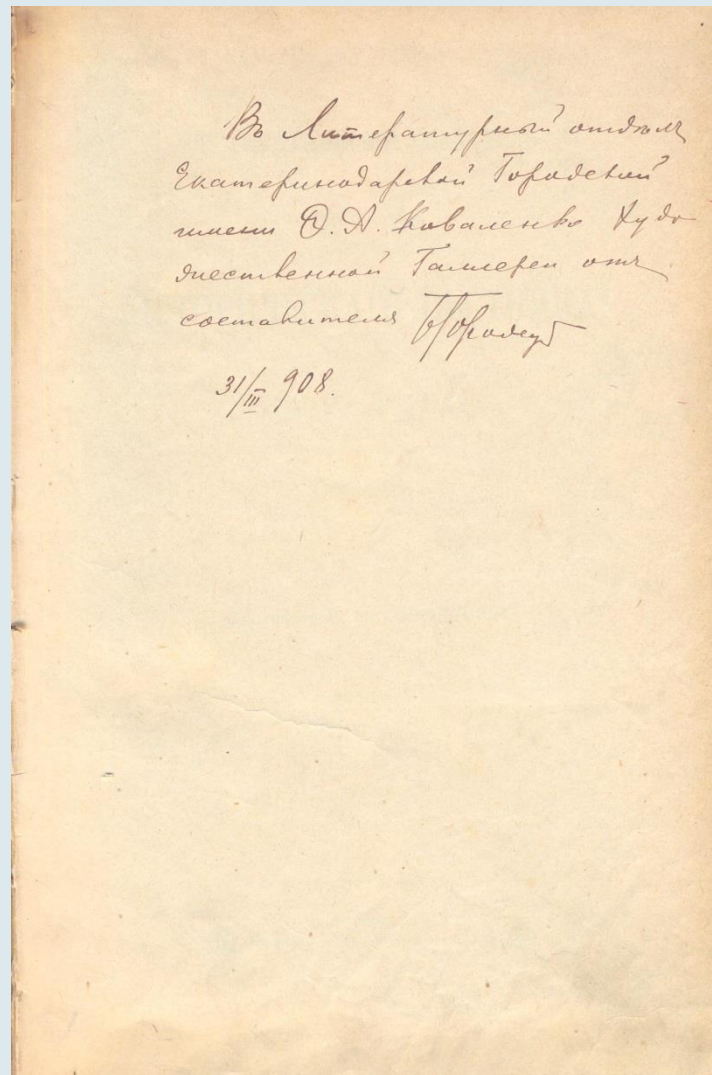 Въ Литературный отдѣлъ
Екатеринодарской Городской
имени Ѳ. А. Коваленко Худо
жественной Галлереи отъ
составителя Б. Городецк
31/III 908.